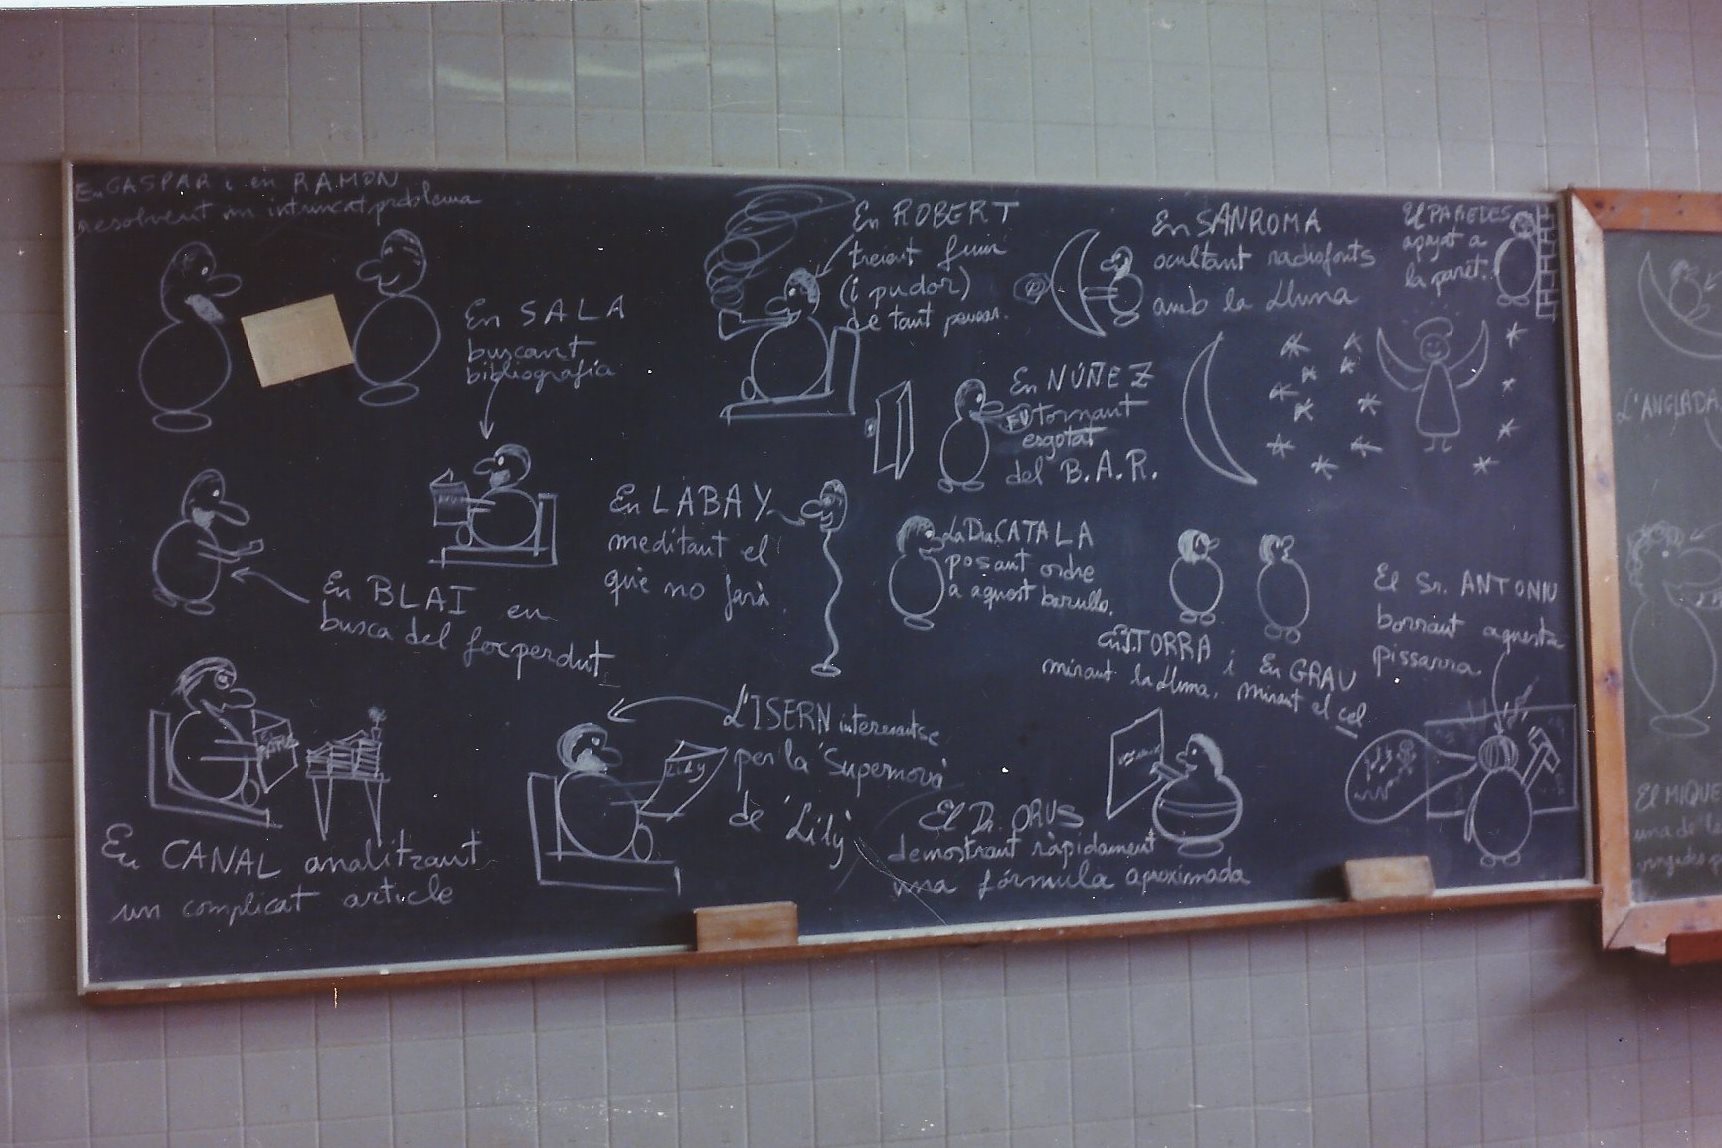 En GASPAR i en RAMON
resolvent un intrincat problema
En SALA
buscant
bibliografia
En ROBERT
treient fum
(i pudor)
de tant pensar.
En SANROMA
ocultant radiofonts
amb la Lluna
El PAREDES
apojat a
la paret.
En NÚÑEZ
tornant
esgotat
del B.A.R.
En BLAI en
busca del foc perdut
En LABAY
meditant el
què no farà.
La Dra CATALA
posant ordre
a aquest barullo.
En J. TORRA i En GRAU
mirant la Lluna. mirant el cel
El Sr. ANTONIU
borrant aquesta
pissarra
En CANAL analitzant
un complicat article
L'ISERN interesantse
per la 'Supernova'
de 'Lily'
Lily
El Dr. ORUS
demostrant ràpidament
una fórmula aproximada
L'ANGLADA
El MIQUE
una de le